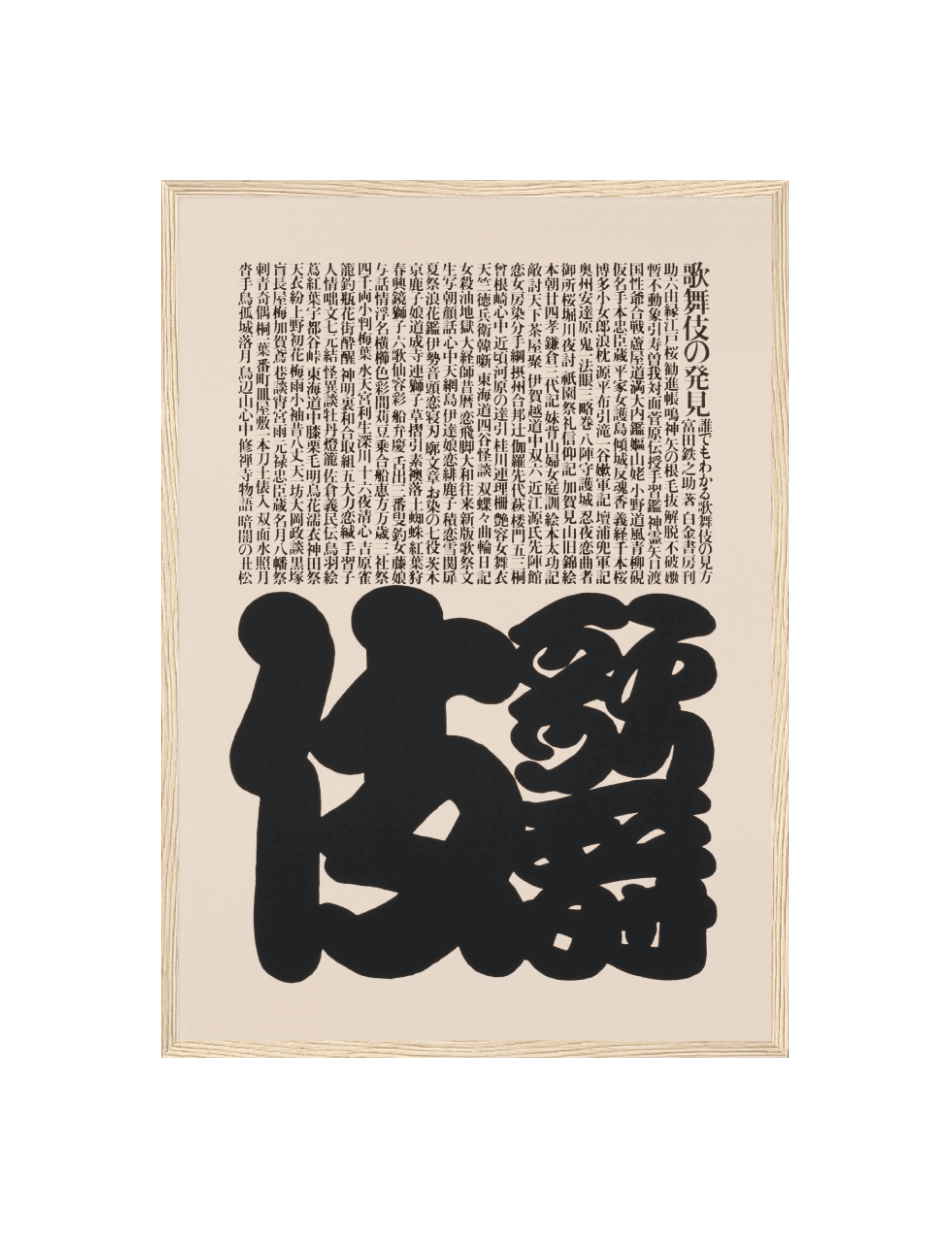 歌舞伎の発見
誰でもわかる歌舞伎の見方
富田鉄之助著 白金書房刊
助六由縁江戸桜 勧進帳 鳴神 矢の根 毛抜 解脱 不破 嫐
暫 不動 象引 寿曽我対面 菅原伝授手習鑑 神霊矢口渡
国性爺合戦 蘆屋道満大内鑑 嫗山姥 小野道風青柳硯
仮名手本忠臣蔵 平家女護島 傾城反魂香 義経千本桜
博多小女郎浪枕 源平布引滝 一谷嫩軍記 壇浦兜軍記
奥州安達原 鬼一法眼三略巻 八陣守護城 忍夜恋曲者
御所桜堀川夜討 祇園祭礼信仰記 加賀見山旧錦絵
本朝廿四孝 鎌倉三代記 妹背山婦女庭訓 絵本太功記
敵討天下茶屋聚 伊賀越道中双六 近江源氏先陣館
恋女房染分手綱 摂州合邦辻 伽羅先代萩 楼門五三桐
曽根崎心中 近頃河原の達引 桂川連理柵 艶容女舞衣
天竺徳兵衛韓噺 東海道四谷怪談 双蝶々曲輪日記
女殺油地獄 大経師昔暦 恋飛脚大和往来 新版歌祭文
生写朝顔話 心中天網島 伊達娘恋緋鹿子 積恋雪関扉
夏祭浪花鑑 伊勢音頭恋寝刃 廓文章 お染の七役 茨木
京鹿子娘道成寺 連獅子 草摺引 素襖落 土蜘 紅葉狩
春興鏡獅子 六歌仙容彩 船弁慶 舌出三番叟 釣女 藤娘
与話情浮名横櫛 色彩間苅豆 乗合船恵方万歳 三社祭
四千両小判梅葉 水天宮利生深川 十六夜清心 吉原雀
籠釣瓶花街酔醒 神明恵和合取組 五大力恋緘 手習子
人情噺文七元結 怪異談牡丹燈籠 佐倉義民伝 鳥羽絵
蔦紅葉宇都谷峠 東海道中膝栗毛 明烏花濡衣 神田祭
天衣紛上野初花 梅雨小袖昔八丈 天一坊大岡政談 黒塚
盲長屋梅加賀鳶 巷談宵宮雨 元禄忠臣蔵 名月八幡祭
刺青奇偶 桐一葉 番町皿屋敷 一本刀土俵入 双面水照月
沓手鳥孤城落月 鳥辺山心中 修禅寺物語 暗闇の丑松
歌舞伎